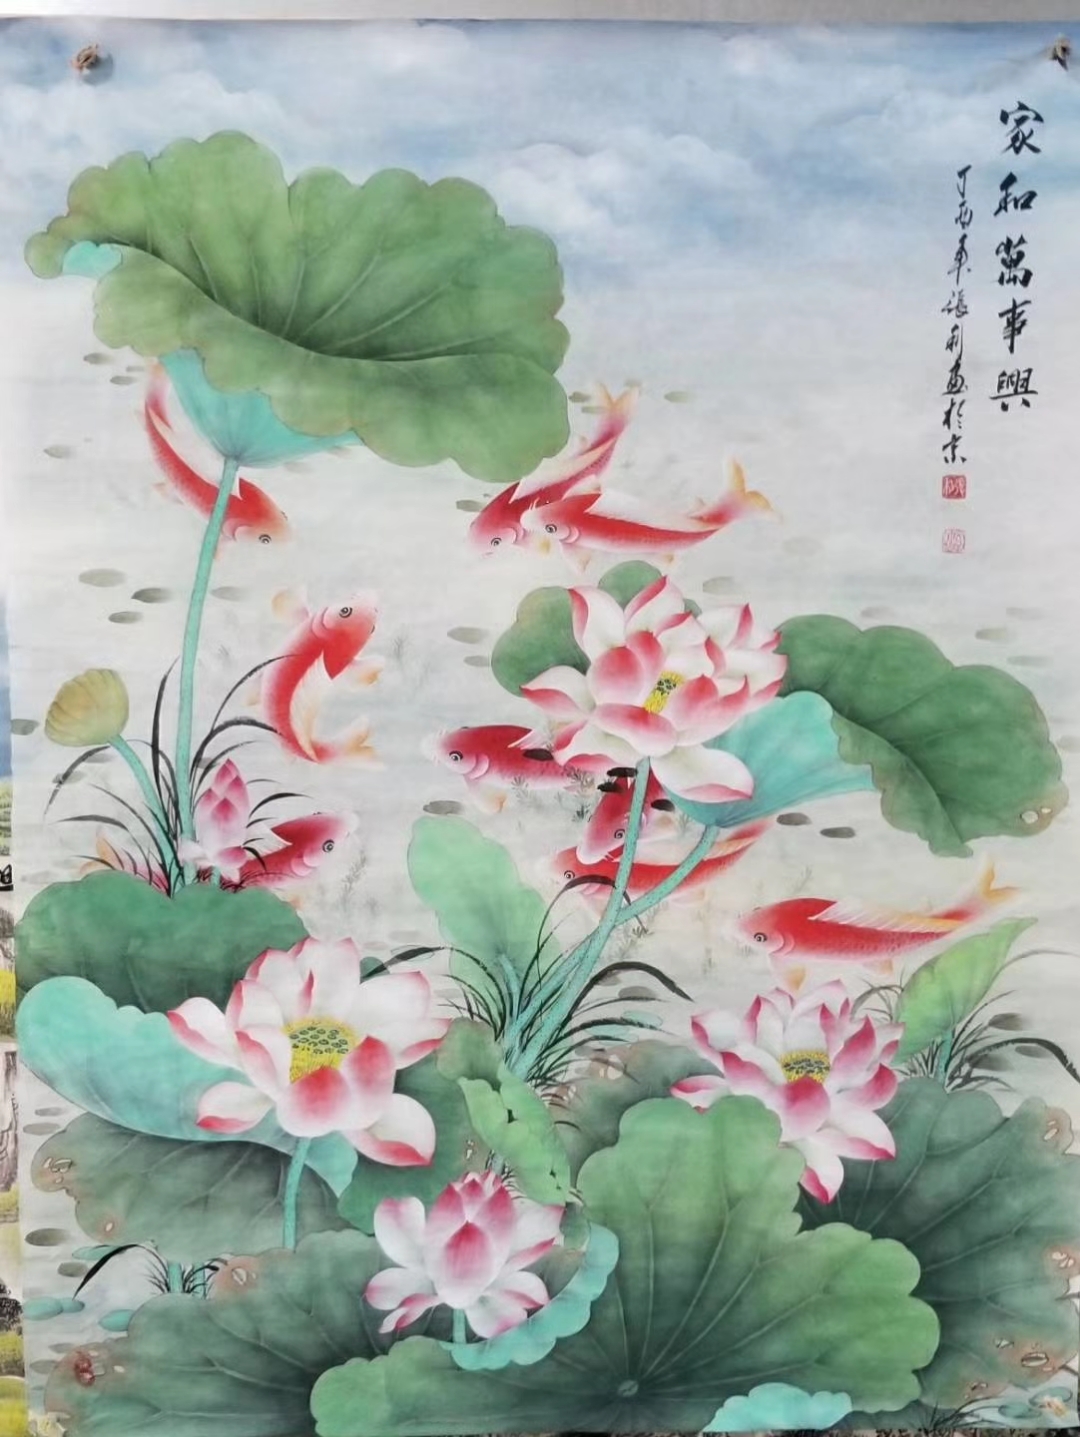 家和萬事興
丁酉年張利畫於京